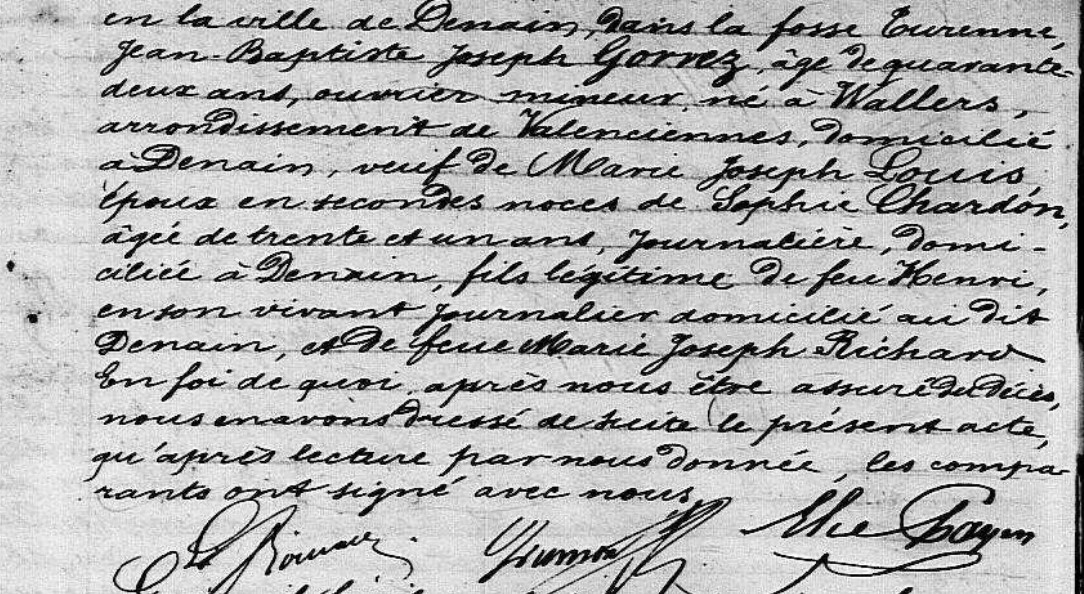 en la ville de Denain, dans la fosse Turenne,
Jean-Baptiste Joseph Gorrez, âgé de quarante-
deux ans, ouvrier mineur, né à Wallers,
arrondissement de Valenciennes, domicilié
à Denain, veuf de Marie Joseph Louis,
époux en secondes noces de Sophie Chardon,
âgée de trente et un ans, journalière, domi-
ciliée à Denain, fils légitime de feu Henri,
en son vivant journalier domicilié au dit
Denain, et de feue Marie Joseph Richard
En foi de quoi, après nous être assuré du décès,
nous en avons dressé de suite le présent acte,
qu'après lecture par nous donnée, les compa-
rants ont signé avec nous,
Elie Payen